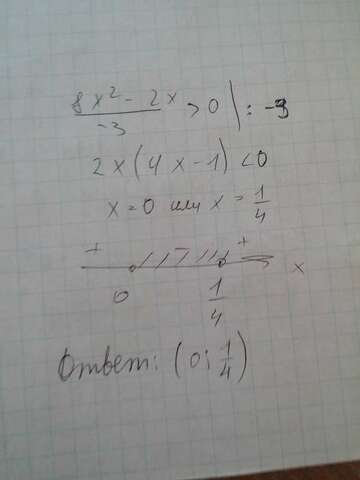 8x² - 2x / -3 > 0 | : -3
2x(4x-1) < 0
x = 0 или x = 1/4
+ + x
0 1/4
Ответ: (0; 1/4)